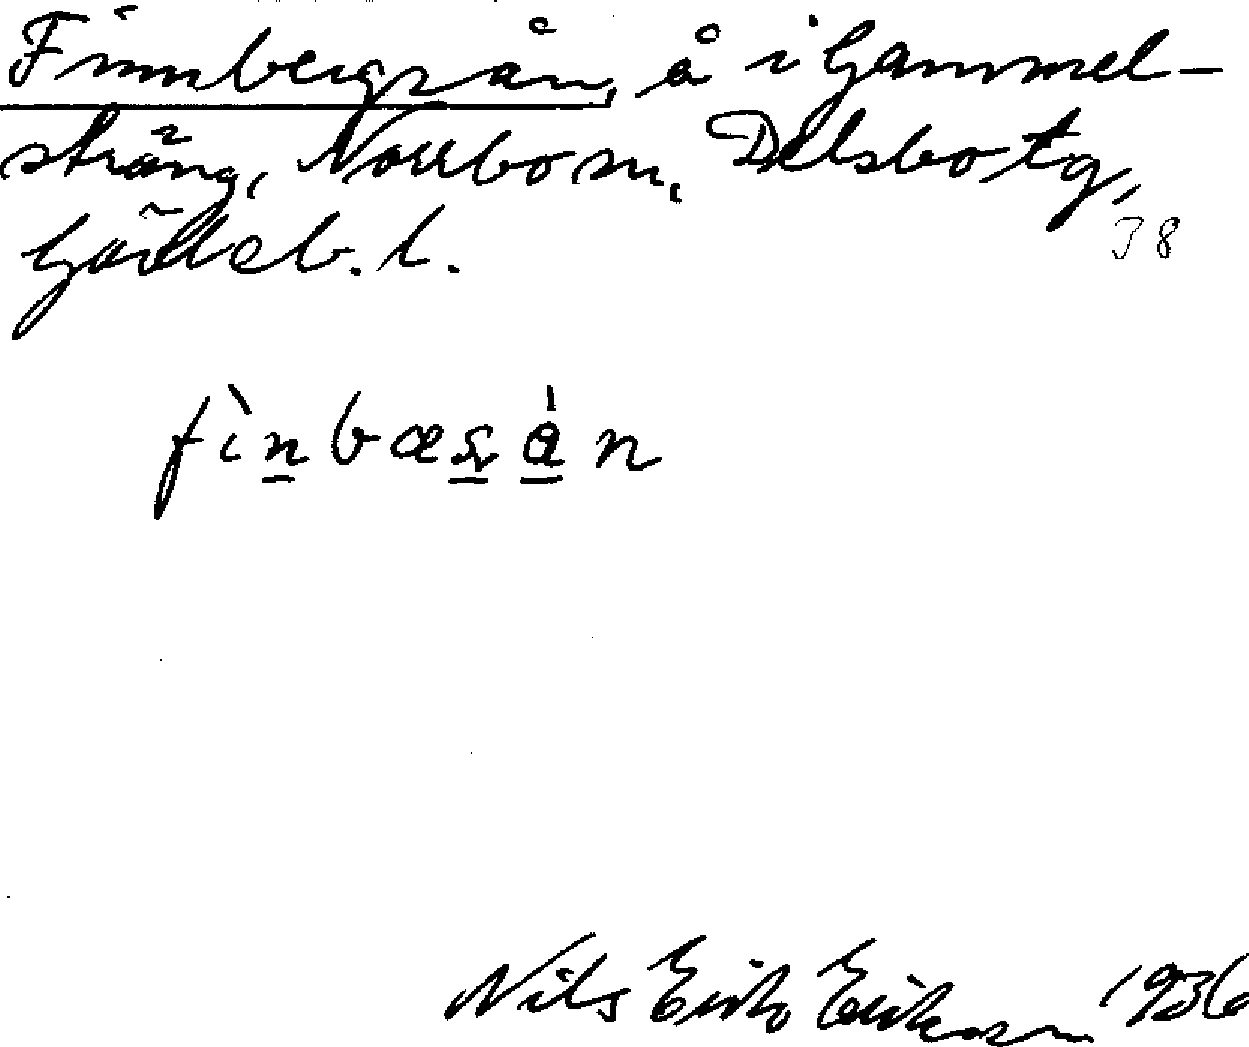 Finnbergsån, å i Gammel-
sträng, Norrbo sn, Delsbo tg,
Gävleb. l.
38
fìnbæṣån
Nils Erik Eriksson 1936